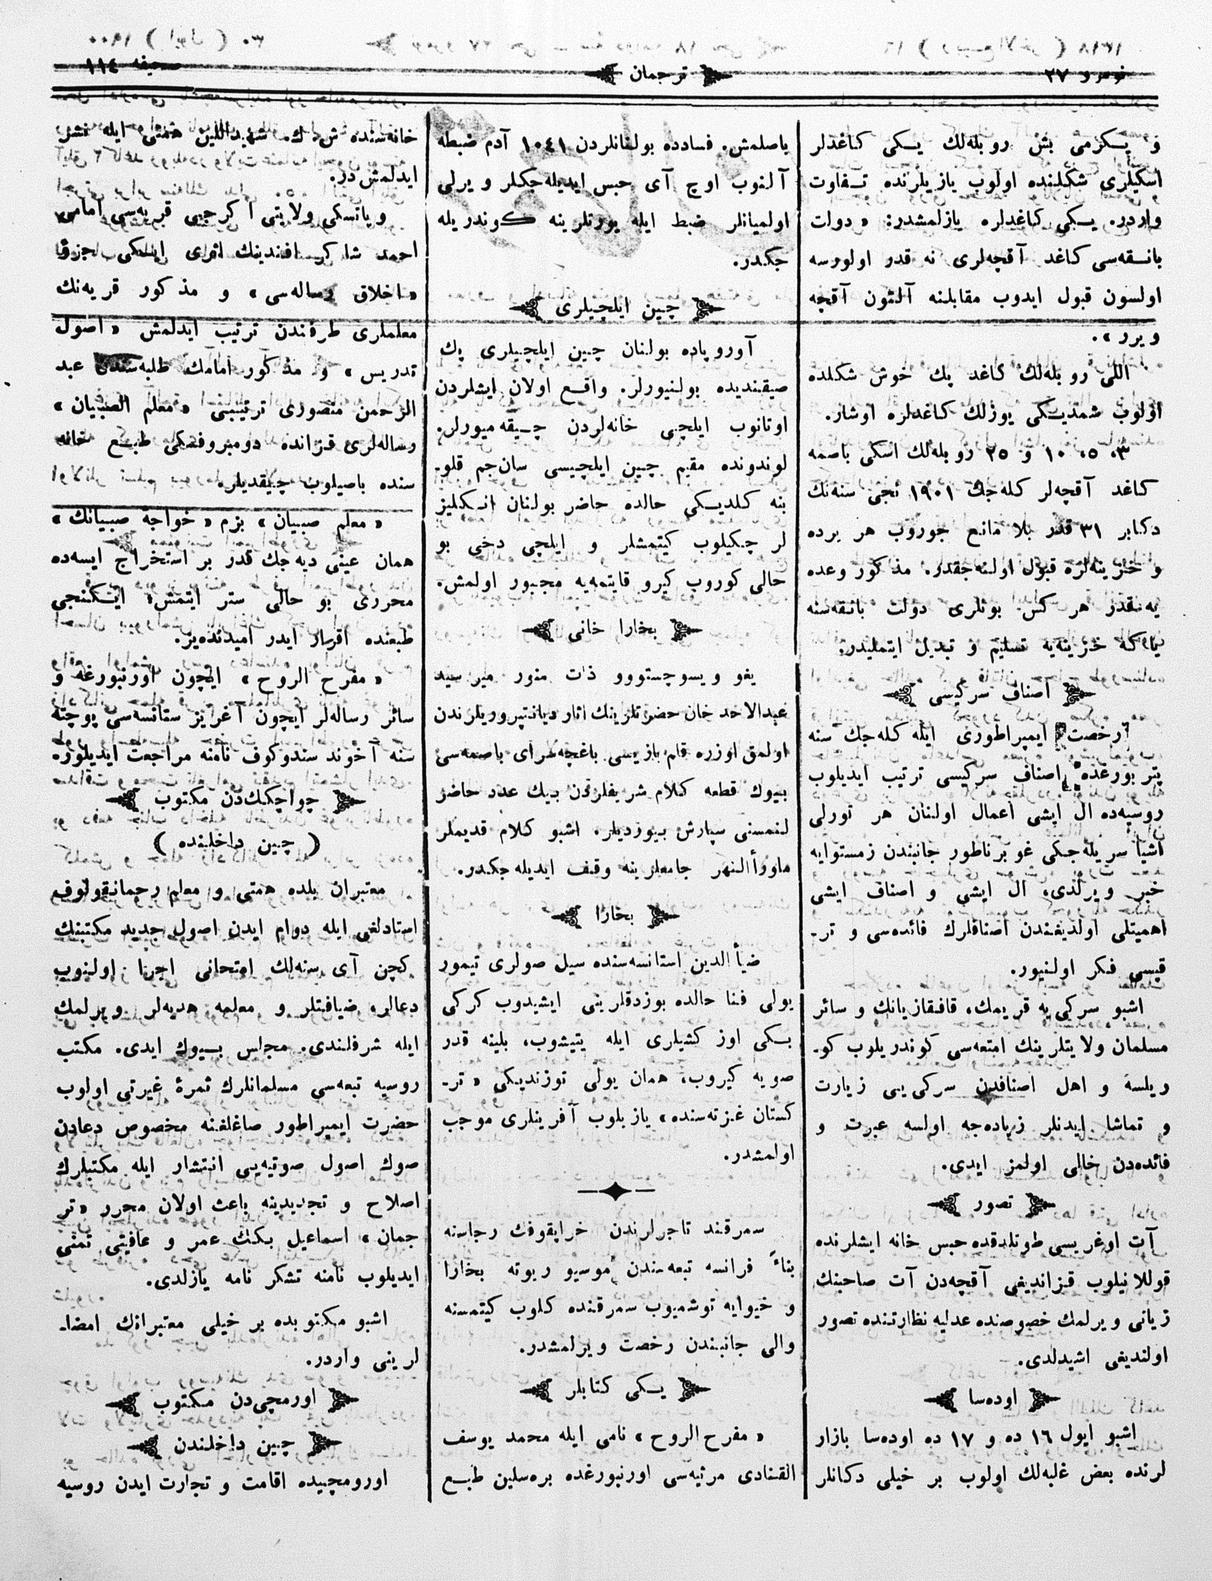 نومرو ٢٧
ترجمان
صحيفه ١١٤
و يكرمى بش روبله‌لك يكى كاغدلر
اسكيلرى شكلنده اولوب يازيلرنده تفاوت
واردر. يكى كاغدلره يازلمشدر: «دولت
بانقه‌سى كاغد آقچه‌لرى نه قدر اولورسه
اولسون قبول ايدوب مقابلنه آلتون آقچه
ويرر».
اللى روبله‌لك كاغد پك خوش شكلده
اولوب شمديكى يوزلك كاغدلره اوشار.
٣، ٥، ١٠ و ٢٥ روبله‌لك اسكى باصمه
كاغد آقچه‌لر كله‌جك ١٩٠١ نجى سنه‌نك
دكابر ٣١ قدر بلا مانع جوروب هر يرده
و خزينه‌لره قبول اولنه‌جقدر. مذكور وعده
يه‌قدر هر كس بونلرى دولت بانقه‌سنه
ياكه خزينه‌يه تسليم و تبديل ايتمليدر.
اصناف سركيسى
رخصت ايمپراطورى ايله كله‌جك سنه
پتربورغده اصناف سركيسى ترتيب ايديلوب
روسيه‌ده ال ايشى اعمال اولنان هر تورلى
اشيا سريله‌جكى غوبرناطور جانبندن زمستوايه
خبر ويرلدى، ال ايشى و اصناف ايشى
اهميتلى اولديغندن اصنافلرك فائده‌سى و تر-
قيسى فكر اولنيور.
اشبو سركى‌يه قريمك، قافقازيانك و سائر
مسلمان ولايتلرينك امتعه‌سى كوندريلوب كو-
ريلسه و اهل اصنافدن سركى‌يى زيارت
و تماشا ايدنلر زياده‌جه اولسه عبرت و
فائده‌دن خالى اولمز ايدى.
تصور
آت اوغريسى طوتلدقده حبس خانه ايشلرنده
قوللانيلوب قزانديغى آقچه‌دن آت صاحبنك
زيانى ويرلمك خصوصنده عدليه نظارتنده تصور
اولنديغى اشيدلدى.
اوده‌سا
اشبو ايول ١٦ ده و ١٧ ده اوده‌سا بازار
لرنده بعض غلبه‌لك اولوب بر خيلى دكانلر
ياصلمش. فسادده بولنانلردن ١٠٤١ آدم ضبطه
آلنوب اوچ آى حبس ايديله‌جكلر و يرلى
اولميانلر ضبط ايله يورتلرينه كوندريله
جكدر.
چين ايلچيلرى
آوروپاده بولنان چين ايلچيلرى پك
صيقنديده بولنيورلر. واقع اولان ايشلردن
اوتانوب ايلچى خانه‌لردن چيقه‌ميورلر.
لوندونده مقيم چين ايلچيسى سان‌جم قلو-
بنه كلديكى حالده حاضر بولنان انكليز
لر چكيلوب كيتمشلر و ايلچى دخى بو
حالى كوروب كيرو قايتمه‌يه مجبور اولمش.
بخارا خانى
يغو ويسوچستوو ذات منور مير سيد
عبدالاحد خان حضرتلرينك اثار ديانتپروريلرندن
اولمق اوزره قلم يازيسى باغچه‌سراى باصمه‌سى
بيوك قطعه كلام شريفلردن بيك عدد حاضر
لنمسنى سپارش بيورديلر. اشبو كلام قديملر
ماوراالنهر جامعلرينه وقف ايديله‌جكدر.
بخارا
ضياالدين استانسه‌سنده سيل صولرى تيمور
يولى فنا حالده بوزدقلرينى ايشيدوب كركى
بكى اوز كشيلرى ايله يتيشوب، بلينه قدر
صويه كيروب، همان يولى توزنديكى «تر-
كستان غزته‌سنده» يازيلوب آفرينلرى موجب
اولمشدر.
سمرقند تاجرلرندن خرابقوفك رجاسنه
بناءً فرانسه تبعه‌سندن موسيو ريوته بخارا
و خيوايه توشميوب سمرقنده كلوب كيتمسنه
والى جانبندن رخصت ويرلمشدر.
يكى كتابلر
«مفرح الروح» نامى ايله محمد يوسف
القنادى مرثيه‌سى اورنبورغده بره‌سلين طبع
خانه‌سنده ش. ك. شهيداللين همتى ايله نشر
ايدلمش‌در.
وياتسكى ولايتى اكرجى قريه‌سى امامى
احمد شاكر افندينك اثرى ايلكى جزؤ
«اخلاق رساله‌سى» و مذكور قريه‌نك
معلملرى طرفندن ترتيب ايدلمش «اصول
تدريس» و مذكور امامك طلبه‌سندن عبد
الرحمن منصورى ترتيبى «معلم الصبيان»
رساله‌لرى قزانده دومبروفسكى طبع خانه
سنده باصيلوب چيقديلر.
«معلم صبيان» بزم «خواجهٔ صبيانك»
همان عينى ديه‌جك قدر بر استخراج ايسه‌ده
محررى بو حالى ستر ايتمش؛ ايكنجى
طبعنده اقرار ايدر اميدنده‌يز.
«مفرح الروح» ايچون اورنبورغه و
سائر رساله‌لر ايچون آغريز ستانسه‌سى پوچته
سنه آخوند سندوكوف نامنه مراجعت ايديلور.
چواچكدن مكتوب
(چين داخلنده)
معتبران بلده همتى و معلم رحمانقولوف
استادلغى ايله دوام ايدن اصول جديد مكتبنك
كچن آى سنه‌لك امتحانى اجرا اولنوب
دعالر، ضيافتلر و معلمه هديه‌لر ويرلمك
ايله شرفلندى. مجلس بيوك ايدى. مكتب
روسيه تبعه‌سى مسلمانلرك ثمرهٔ غيرتى اولوب
حضرت ايمپراطور صاغلغنه مخصوص دعادن
صوك اصول صوتيه‌يى انتشار ايله مكتبلرك
اصلاح و تجديدينه باعث اولان محرر «تر
جمان» اسماعيل بكك عمر و عافيتى تمنى
ايديلوب نامنه تشكر نامه يازلدى.
اشبو مكتوبده بر خيلى معتبرانك امضا-
لرينى واردر.
اورمچى‌دن مكتوب
چين داخلندن
اورومچيده اقامت و تجارت ايدن روسيه